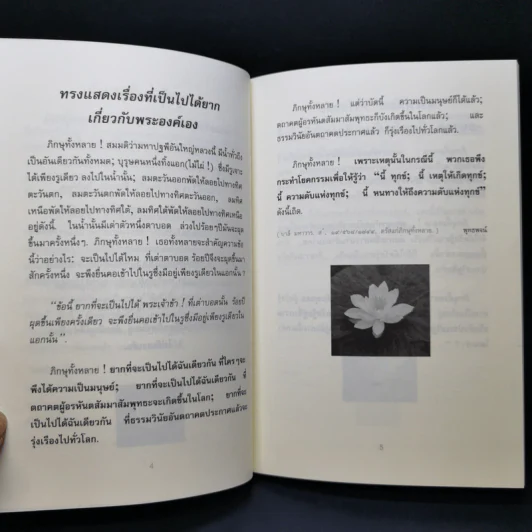 ทรงแสดงเรื่องที่เป็นไปได้ยาก
เกี่ยวกับพระองค์เอง
ภิกษุทั้งหลาย ! สมมติว่ามหาปฐพีอันใหญ่หลวงนี้ มีน้ำทั่วถึง
เป็นอันเดียวกันทั้งหมด; บุรุษคนหนึ่งทิ้งแอก(ไม้ไผ่ !) ซึ่งมีรูเจาะ
ได้เพียงรูเดียว ลงไปในน้ำนั้น; ลมตะวันออกพัดให้ลอยไปทางทิศ
ตะวันตก, ลมตะวันตกพัดให้ลอยไปทางทิศตะวันออก, ลมทิศ
เหนือพัดให้ลอยไปทางทิศใต้, ลมทิศใต้พัดให้ลอยไปทางทิศเหนือ
อยู่ดังนี้. ในน้ำนั้นมีเต่าตัวหนึ่งตาบอด ล่วงไปร้อยปีมันจะผุด
ขึ้นมาครั้งหนึ่งๆ. ภิกษุทั้งหลาย ! เธอทั้งหลายจะสำคัญความข้อ
นี้ว่าอย่างไร: จะเป็นไปได้ไหม ที่เต่าตาบอด ร้อยปีจึงจะผุดขึ้นมา
สักครั้งหนึ่ง จะพึงยื่นคอเข้าไปในรูซึ่งมีอยู่เพียงรูเดียวในแอกนั้น ?
“ข้อนี้ ยากที่จะเป็นไปได้ พระเจ้าข้า ! ที่เต่าบอดนั้น ร้อยปี
ผุดขึ้นเพียงครั้งเดียว จะพึงยื่นคอเข้าไปในรูซึ่งมีอยู่เพียงรูเดียวใน
แอกนั้น”.
ภิกษุทั้งหลาย ! ยากที่จะเป็นไปได้ฉันเดียวกัน ที่ใครๆจะ
พึงได้ความเป็นมนุษย์; ยากที่จะเป็นไปได้ฉันเดียวกัน ที่
ตถาคตผู้อรหันตสัมมาสัมพุทธะจะเกิดขึ้นในโลก; ยากที่จะ
เป็นไปได้ฉันเดียวกัน ที่ธรรมวินัยอันตถาคตประกาศแล้วจะ
รุ่งเรืองไปทั่วโลก.
4
ภิกษุทั้งหลาย ! แต่ว่าบัดนี้ ความเป็นมนุษย์ก็ได้แล้ว;
ตถาคตผู้อรหันตสัมมาสัมพุทธะก็บังเกิดขึ้นในโลกแล้ว; และ
ธรรมวินัยอันตถาคตประกาศแล้ว ก็รุ่งเรืองไปทั่วโลกแล้ว.
ภิกษุทั้งหลาย ! เพราะเหตุนั้นในกรณีนี้ พวกเธอพึง
กระทำโยคกรรมเพื่อให้รู้ว่า “นี้ ทุกข์; นี้ เหตุให้เกิดทุกข์;
นี้ ความดับแห่งทุกข์; นี้ หนทางให้ถึงความดับแห่งทุกข์”
ดังนี้เถิด.
ตรัสแก่ภิกษุทั้งหลาย. ) พุทธพจน์
5